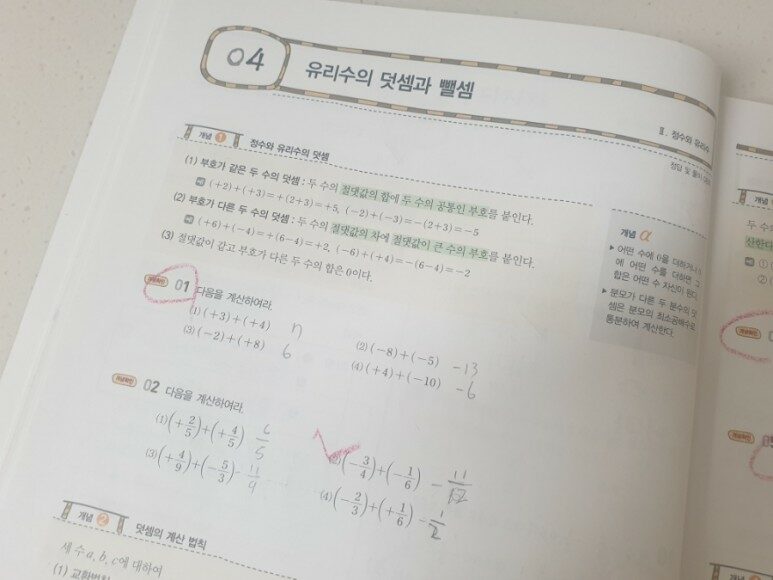 04 유리수의 덧셈과 뺄셈
Ⅱ. 정수와 유리수
정답 및 풀이
개념 1 정수와 유리수의 덧셈
(1) 부호가 같은 두 수의 덧셈 : 두 수의 절댓값의 합에 두 수의 공통인 부호를 붙인다.
예 (+2)+(+3)=+(2+3)=+5, (-2)+(-3)=-(2+3)=-5
(2) 부호가 다른 두 수의 덧셈 : 두 수의 절댓값의 차에 절댓값이 큰 수의 부호를 붙인다.
예 (+6)+(-4)=+(6-4)=+2, (-6)+(+4)=-(6-4)=-2
(3) 절댓값이 같고 부호가 다른 두 수의 합은 0이다.
개념 α
▶ 어떤 수에 0을 더하거나 0
에 어떤 수를 더하면 그
합은 어떤 수 자신이 된다.
▶ 분모가 다른 두 분수의 덧
셈은 분모의 최소공배수로
통분하여 계산한다.
개념확인 01 다음을 계산하여라.
(1) (+3)+(+4) 7
(2) (-8)+(-5) -13
(3) (-2)+(+8) 6
(4) (+4)+(-10) -6
개념확인 02 다음을 계산하여라.
(1) (+2/5)+(+4/5) 6/5
(-3/4)+(-1/6) -11/12
(3) (+4/9)+(-5/3) -11/9
(4) (-2/3)+(+1/6) -1/2
개념 2 덧셈의 계산 법칙
세 수 a, b, c에 대하여
(1) 교환법칙
두 수
산한다
예 ①
②
개념확인
개념확인